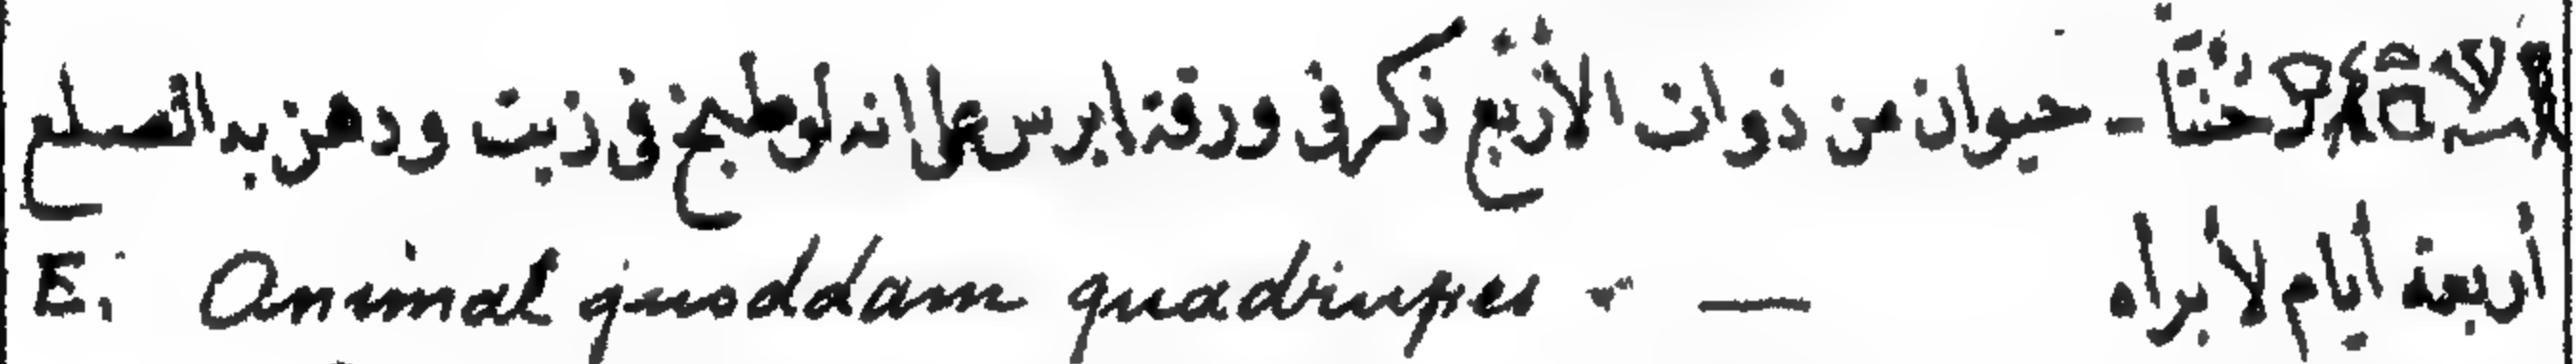 خنتا - حيوان من ذوات الأربع ذكر فى ورقة ابرس على انه لو طبخ فى زيت ودهن به الصلع
أربعة أيام لأبرأه — E. Animal quoddam quadrupes